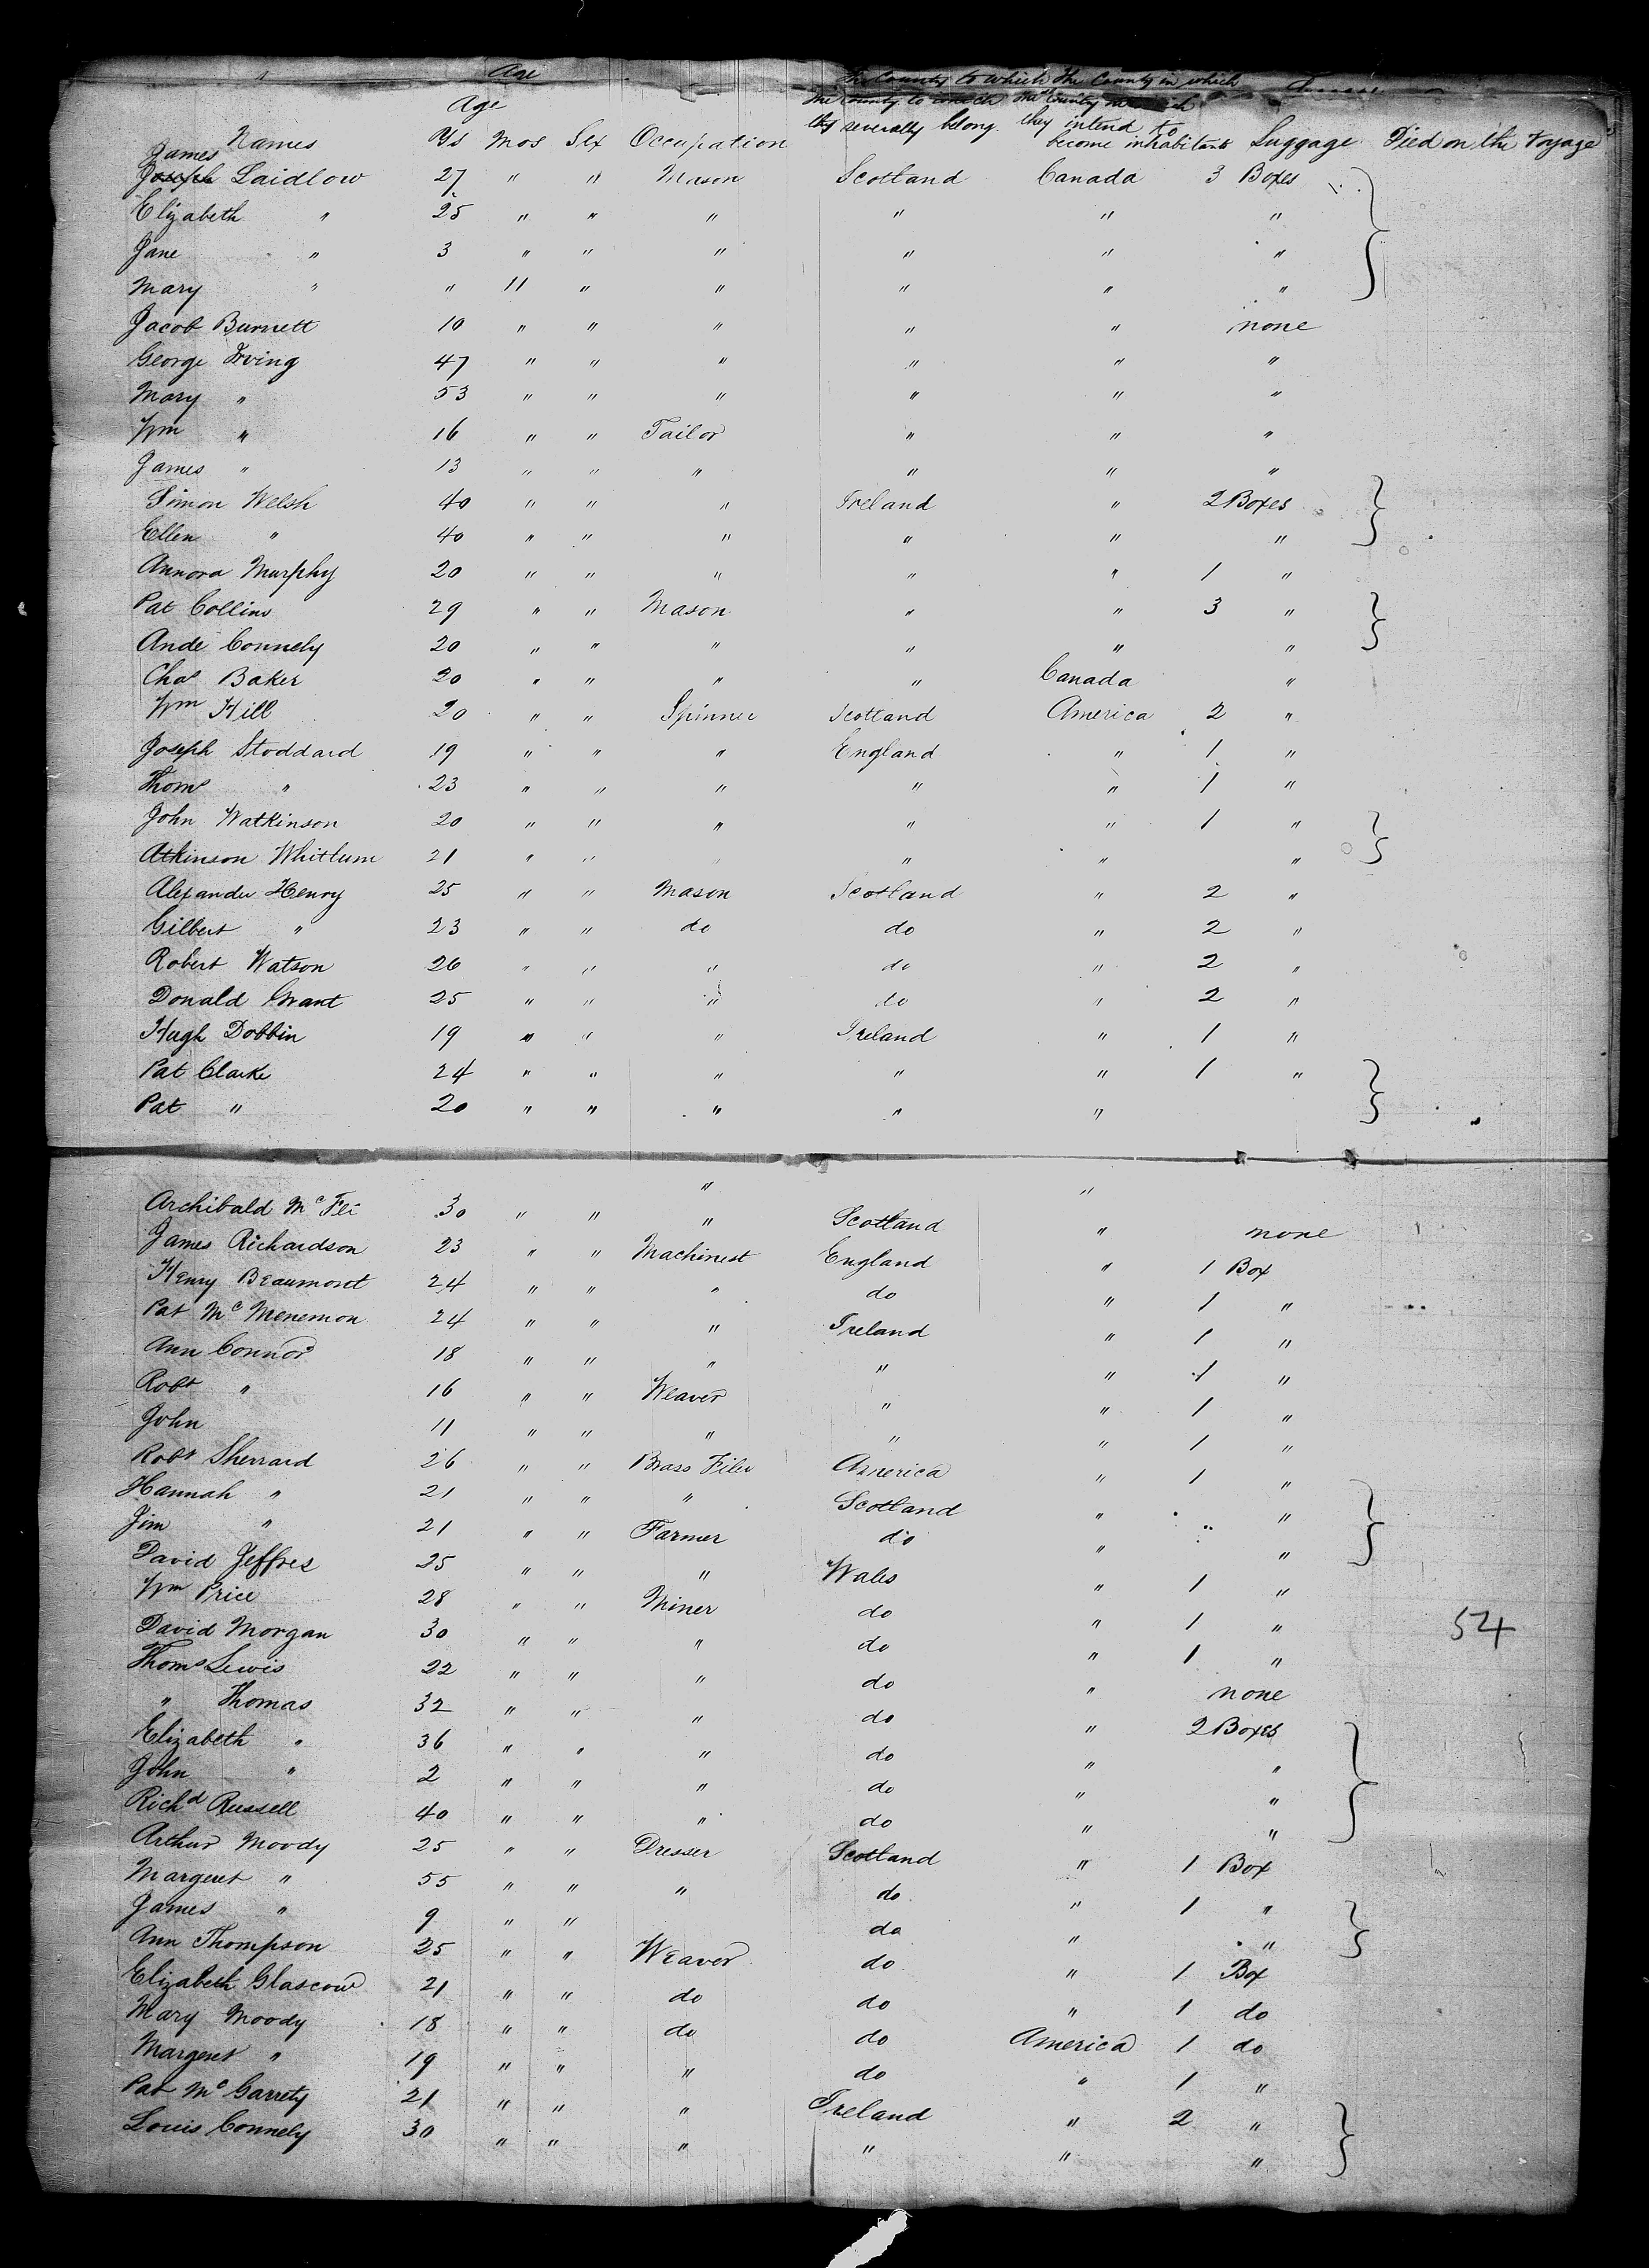 Age
The County to which the County in which
Age
the County to which the County in which
Names Ys Mos Sex Occupation they severally belong they intend to become inhabitants Luggage Died on the Voyage
James
Joseph Laidlow 27 " " Mason Scotland Canada 3 Boxes
Elizabeth " 25 " " " " " "
Jane " 3 " " " " " "
Mary " " 11 " " " " "
Jacob Burnett 10 " " " " " none
George Irving 47 " " " " " "
Mary " 53 " " " " " "
Wm " 16 " " Tailor " " "
James " 13 " " " " " "
Simon Welsh 40 " " " Ireland " 2 Boxes
Ellen " 40 " " " " " "
Annora Murphy 20 " " " " " 1 "
Pat Collins 29 " " Mason " " 3 "
Ande Connely 20 " " " " " "
Chas Baker 20 " " " " Canada "
Wm Hill 20 " " Spinner Scotland America 2 "
Joseph Stoddard 19 " " " England " 1 "
Thoms " 23 " " " " " 1 "
John Watkinson 20 " " " " " 1 "
Atkinson Whitlum 21 " " " " " "
Alexander Henry 25 " " Mason Scotland " 2 "
Gilbert " 23 " " do do " 2 "
Robert Watson 26 " " " do " 2 "
Donald Grant 25 " " " do " 2 "
Hugh Dobbin 19 " " " Ireland " 1 "
Pat Clarke 24 " " " " " 1 "
Pat " 20 " " " " "
" "
Archibald Mc Fli 30 " " " Scotland " none
James Richardson 23 " " Machinest England " 1 Box
Henry Beaumont 24 " " " do " 1 "
Pat Mc Menemon 24 " " " Ireland " 1 "
Ann Connor 18 " " " " " 1 "
Robt " 16 " " Weaver " " 1 "
John 11 " " " " " 1 "
Robt Sherrard 26 " " Brass Filer America " 1 "
Hannah " 21 " " " Scotland " "
Jim " 21 " " Farmer do " "
David Jeffres 25 " " " Wales " 1 "
Wm Price 28 " " Miner do " 1 "
David Morgan 30 " " " do " 1 "
Thoms Lewis 22 " " " do " none
" Thomas 32 " " " do " 2 Boxes
Elizabeth " 36 " " " do " "
John " 2 " " " do " "
Richd Russell 40 " " " do " "
Arthur Moody 25 " " Dresser Scotland " 1 Box
Margeret " 55 " " " do " 1 "
James " 9 " " do " "
Ann Thompson 25 " " Weaver do " 1 Box
Elizabeth Glascow 21 " " do do " 1 do
Mary Moody 18 " " do do America 1 do
Margeret " 19 " " " do " 1 "
Pat Mc Garrety 21 " " " Ireland " 2 "
Louis Connely 30 " " " " " "
54